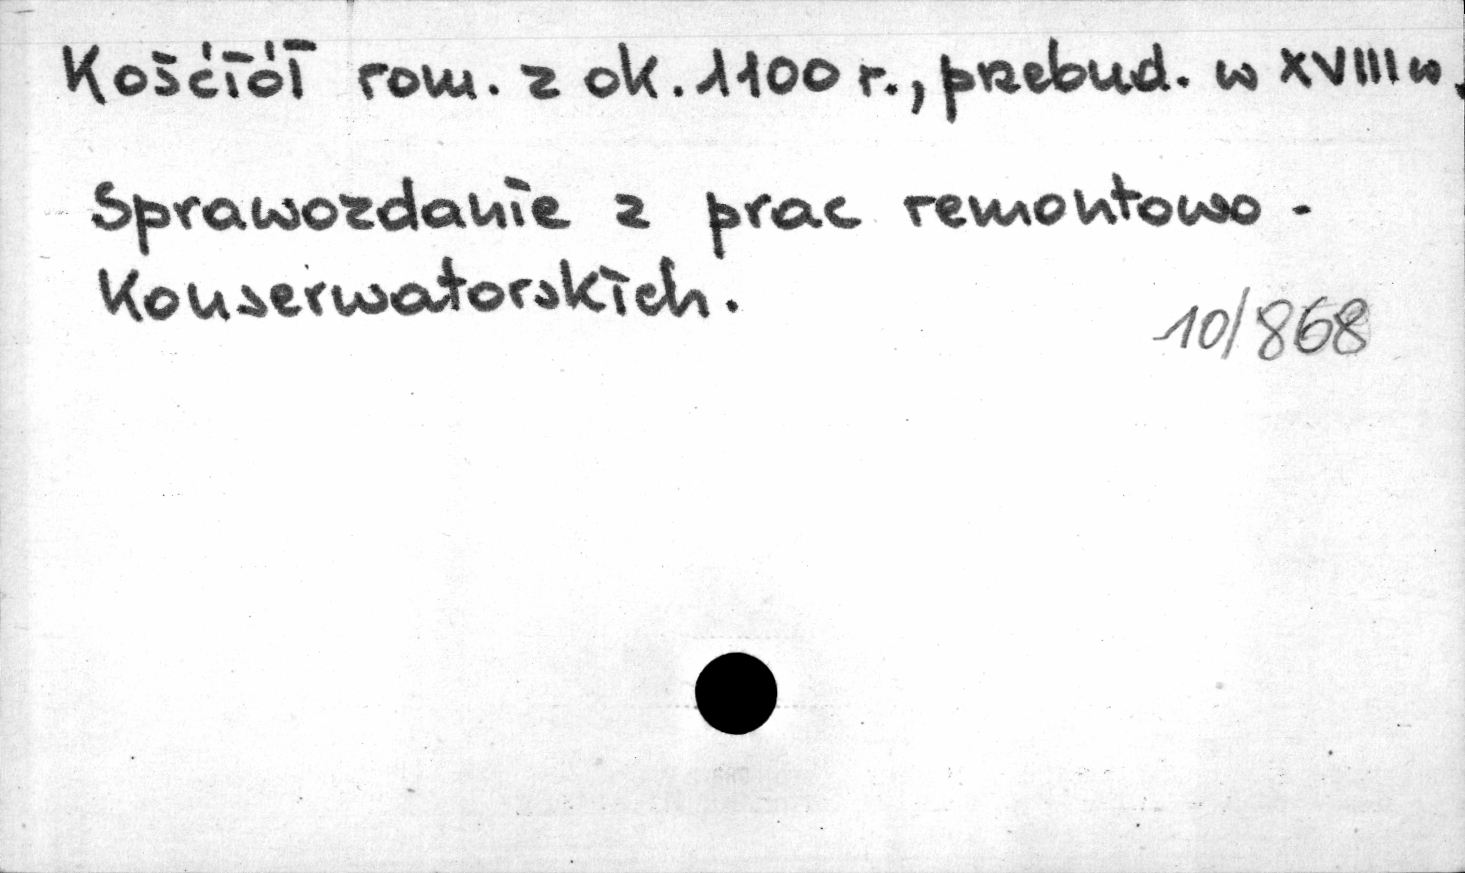 Kościół rom. z ok. 1100 r., przebud. w XVIII w.
Sprawozdanie z prac remontowo -
Konserwatorskich.
10/868